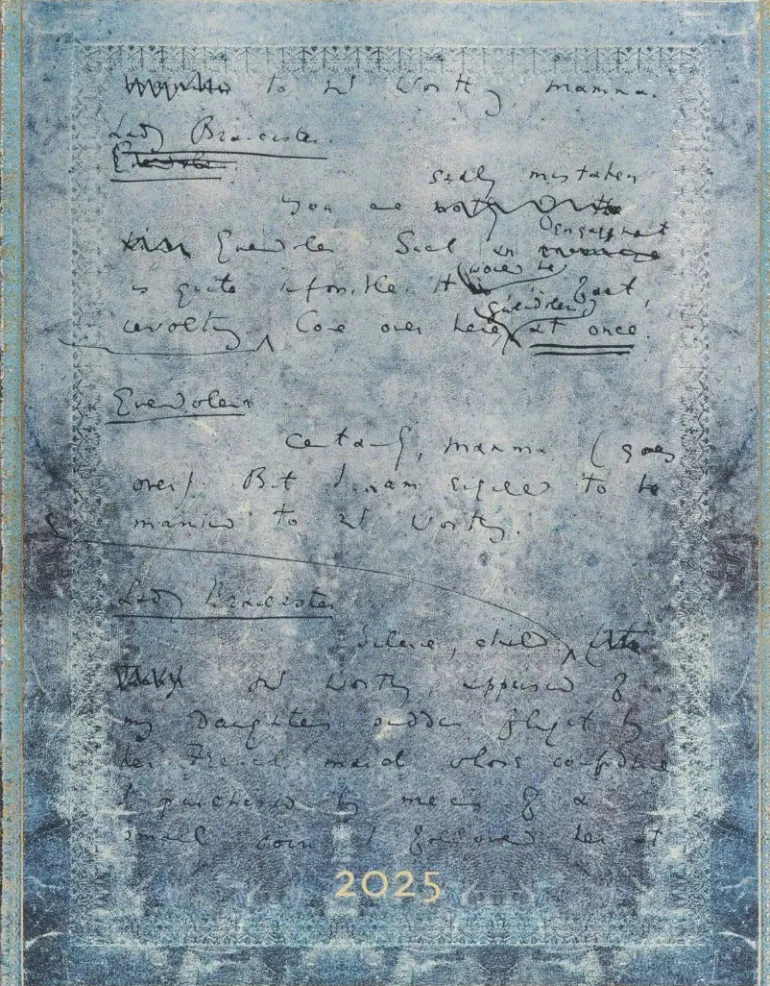 to Mr Worthing, mamma.
Lady Brancaster.
Gwendolen
sadly mistaken
You are
engagement
Gwendolen. Such an
would be
is quite impossible. It is in fact,
Gwendolen
revolting. Come over here, at once.
Gwendolen
Certainly, mamma. (goes
over). But I am engaged to be
married to Mr Worthing.
Lady Brancaster
Silence, child.
Mr Worthing, apprised of
my daughter's sudden flight by
her French maid whose confidence
I purchased by means of a
small coin I followed her at
2025